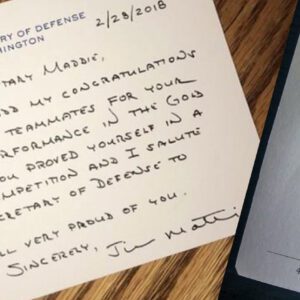 RY OF DEFENSE
HINGTON
2/28/2018
TARY MADDIE,
DD MY CONGRATULATIONS
TEAMMATES FOR YOUR
ERFORMANCE IN THE GOLD
OU PROVED YOURSELF IN A
OMPETITION AND I SALUTE
CRETARY OF DEFENSE TO
LL VERY PROUD OF YOU.
SINCERELY, Jim Mattis